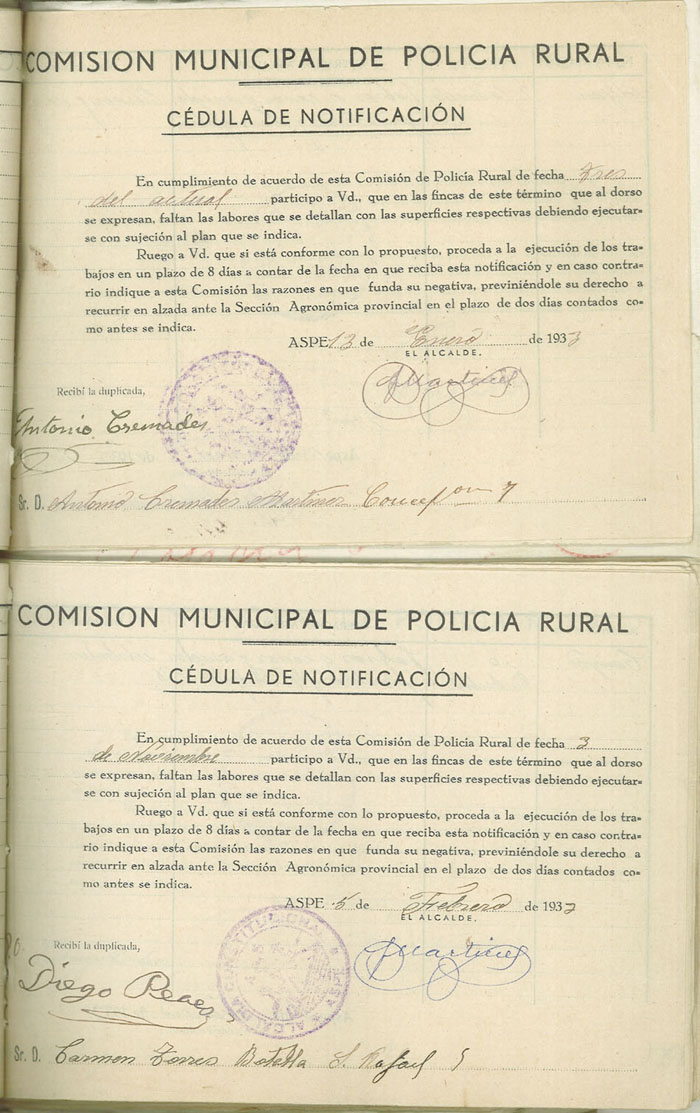 COMISION MUNICIPAL DE POLICIA RURAL
CÉDULA DE NOTIFICACIÓN
En cumplimiento de acuerdo de esta Comisión de Policía Rural de fecha tres
del actual participo a Vd., que en las fincas de este término que al dorso
se expresan, faltan las labores que se detallan con las superficies respectivas debiendo ejecutar-
se con sujeción al plan que se indica.
Ruego a Vd. que si está conforme con lo propuesto, proceda a la ejecución de los tra-
bajos en un plazo de 8 días a contar de la fecha en que reciba esta notificación y en caso contra-
rio indique a esta Comisión las razones en que funda su negativa, previniéndole su derecho a
recurrir en alzada ante la Sección Agronómica provincial en el plazo de dos días contados co-
mo antes se indica.
ASPE 13 de Enero de 1933
EL ALCALDE.
JMartinez
Recibí la duplicada,
Antonio Cremades
Sr. D. Antonio Cremades Martinez Concepon 7
COMISION MUNICIPAL DE POLICIA RURAL
CÉDULA DE NOTIFICACIÓN
En cumplimiento de acuerdo de esta Comisión de Policía Rural de fecha 3
de Noviembre participo a Vd., que en las fincas de este término que al dorso
se expresan, faltan las labores que se detallan con las superficies respectivas debiendo ejecutar-
se con sujeción al plan que se indica.
Ruego a Vd. que si está conforme con lo propuesto, proceda a la ejecución de los tra-
bajos en un plazo de 8 días a contar de la fecha en que reciba esta notificación y en caso contra-
rio indique a esta Comisión las razones en que funda su negativa, previniéndole su derecho a
recurrir en alzada ante la Sección Agronómica provincial en el plazo de dos días contados co-
mo antes se indica.
ASPE 5 de Febrero de 1933
EL ALCALDE.
JMartinez
ALCALDIA CONSTITUCIONAL
Recibí la duplicada,
P.O.
Diego
Sr. D. Carmen Torres Botella S. Rafael 5